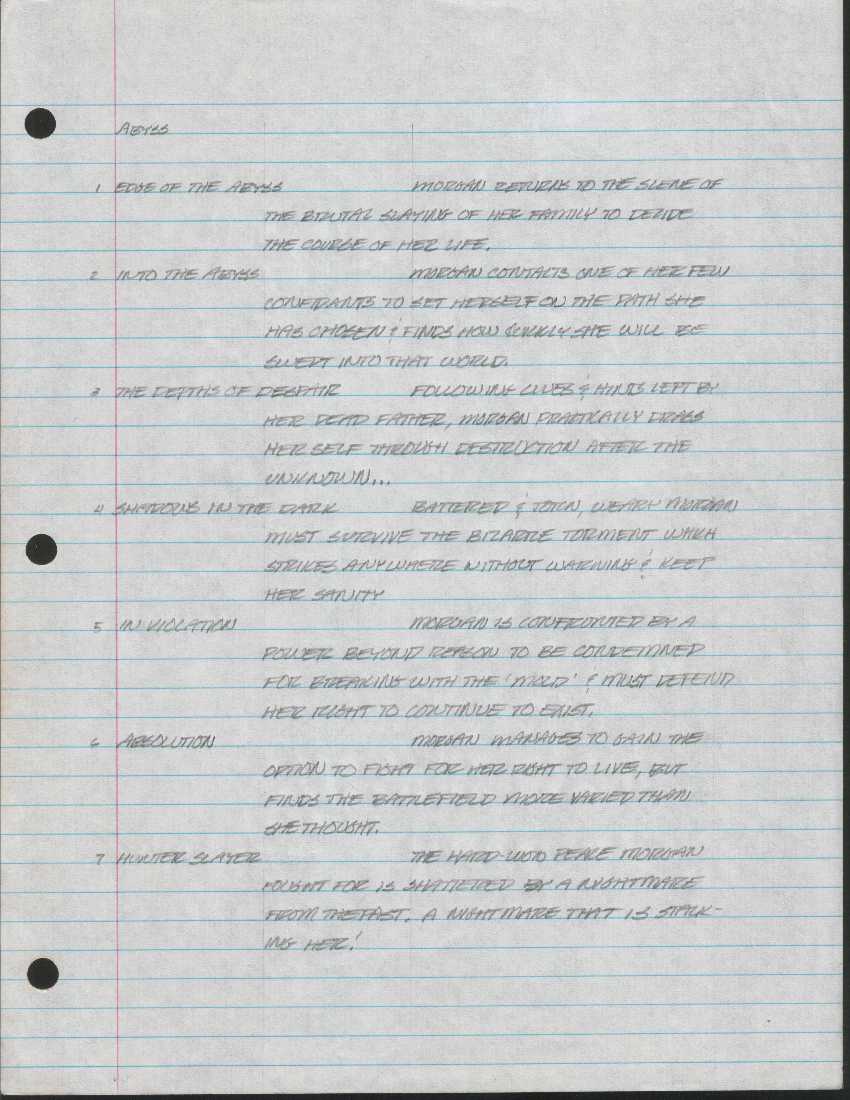 ABYSS
1 EDGE OF THE ABYSS MORGAN RETURNS TO THE SCENE OF
THE BRUTAL SLAYING OF HER FAMILY TO DECIDE
THE COURSE OF HER LIFE.
2 INTO THE ABYSS MORGAN CONTACTS ONE OF HER FEW
CONFIDANTS TO SET HERSELF ON THE PATH SHE
HAS CHOSEN & FINDS HOW QUICKLY SHE WILL BE
SWEPT INTO THAT WORLD.
3 THE DEPTHS OF DESPAIR FOLLOWING CLUES & HINTS LEFT BY
HER DEAD FATHER, MORGAN PRACTICALLY DRAGS
HERSELF THROUGH DESTRUCTION AFTER THE
UNKNOWN...
4 SHADOWS IN THE DARK BATTERED & TORN, WEARY MORGAN
MUST SURVIVE THE BIZARRE TORMENT WHICH
STRIKES ANYWHERE WITHOUT WARNING & KEEP
HER SANITY
5 IN VIOLATION MORGAN IS CONFRONTED BY A
POWER BEYOND REASON TO BE CONDEMNED
FOR BREAKING WITH THE 'MOLD' & MUST DEFEND
HER RIGHT TO CONTINUE TO EXIST.
6 ABSOLUTION MORGAN MANAGES TO GAIN THE
OPTION TO FIGHT FOR HER RIGHT TO LIVE, BUT
FINDS THE BATTLEFIELD MORE VARIED THAN
SHE THOUGHT.
7 HUNTER SLAYER THE HARD-WON PEACE MORGAN
FOUGHT FOR IS SHATTERED BY A NIGHTMARE
FROM THE PAST. A NIGHTMARE THAT IS STALK-
ING HER!